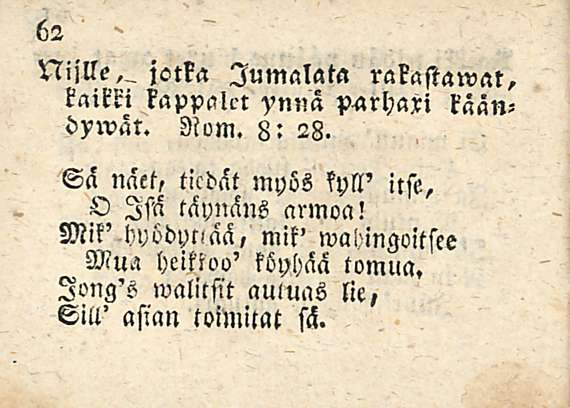 62
Nijlle, jotka Jumalata rakastawat,
kaikki kappalet ynnä parhaxi kään-
dywät. Rom. 8: 28.
Sä näet, tiedät myös kyll' itse,
O Isä täynäns armoa!
Mik' hyödyttää, mik' wahingoitsee
Mua heikkoo' köyhää tomua,
Jong's walitsit autuas lie,
Sill' asian toimitat sä.